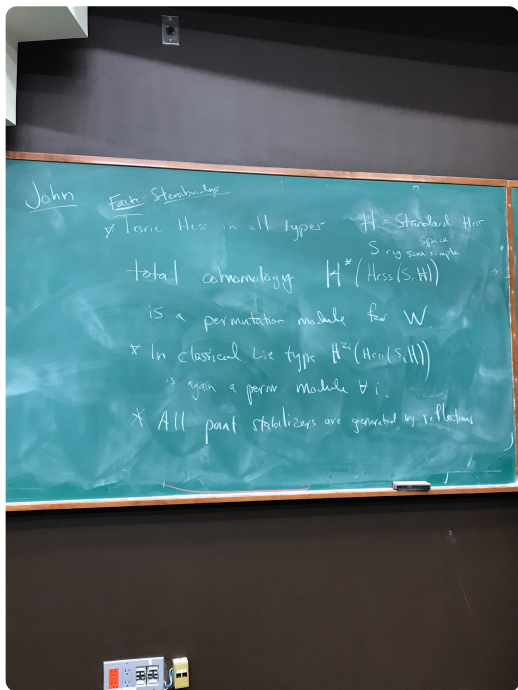 John
Facts: Stembridge
* Toric Hess in all types H = Standard Hess space
S reg semisimple
total cohomology H*(Hess(S,H))
is a permutation module for W.
* In classical Lie type H²ⁱ(Hess(S,H))
is again a perm module ∀ i.
* All point stabilizers are generated by reflections